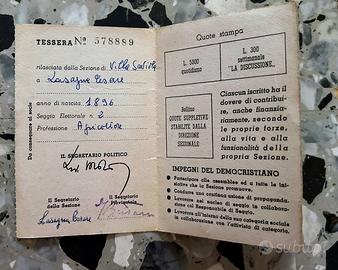 TESSERA Nº 578889
rilasciata dalla Sezione di Villa
a Lasagna Cesare
anno di nascita 1896
Seggio Elettorale n. 2
Professione Agricoltore
Da consegnare al socio
IL SEGRETARIO POLITICO
Il Segretario
della Sezione
Il Segretario
Provinciale
Lasagna Cesare
Quote stampa
L. 5000
quotidiano
L. 300
settimanale
"LA DISCUSSIONE"
Bollino
QUOTE SUPPLETIVE
STABILITE DALLA
DIREZIONE
SEZIONALE
Ciascun iscritto ha il
dovere di contribui-
re, anche finanzia-
riamente, secondo
le proprie forze,
alla vita e alla
funzionalità della
propria Sezione.
IMPEGNI DEL DEMOCRISTIANO
Partecipare alle assemblee ed a tutte le ini-
ziative che la Sezione promuove.
Condurre una continua azione di propaganda.
Lavorare nel nucleo di seggio in collabora-
zione col Responsabile di Seggio.
Lavorare all'interno della sua categoria sociale
in collaborazione con l'attivista di categoria.
subito